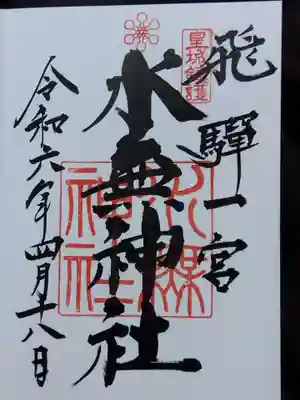 飛驒一宮
皇城鎮護
水無神社
水無神社
令和六年四月十八日